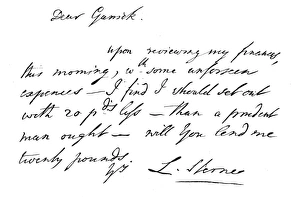 Dear Garrick.
upon reviewing my finances,
this morning, wth some unforseen
expences — I find I should set out
with 20 pds less — than a prudent
man ought — will You lend me
twenty pounds.
yrs L. Sterne